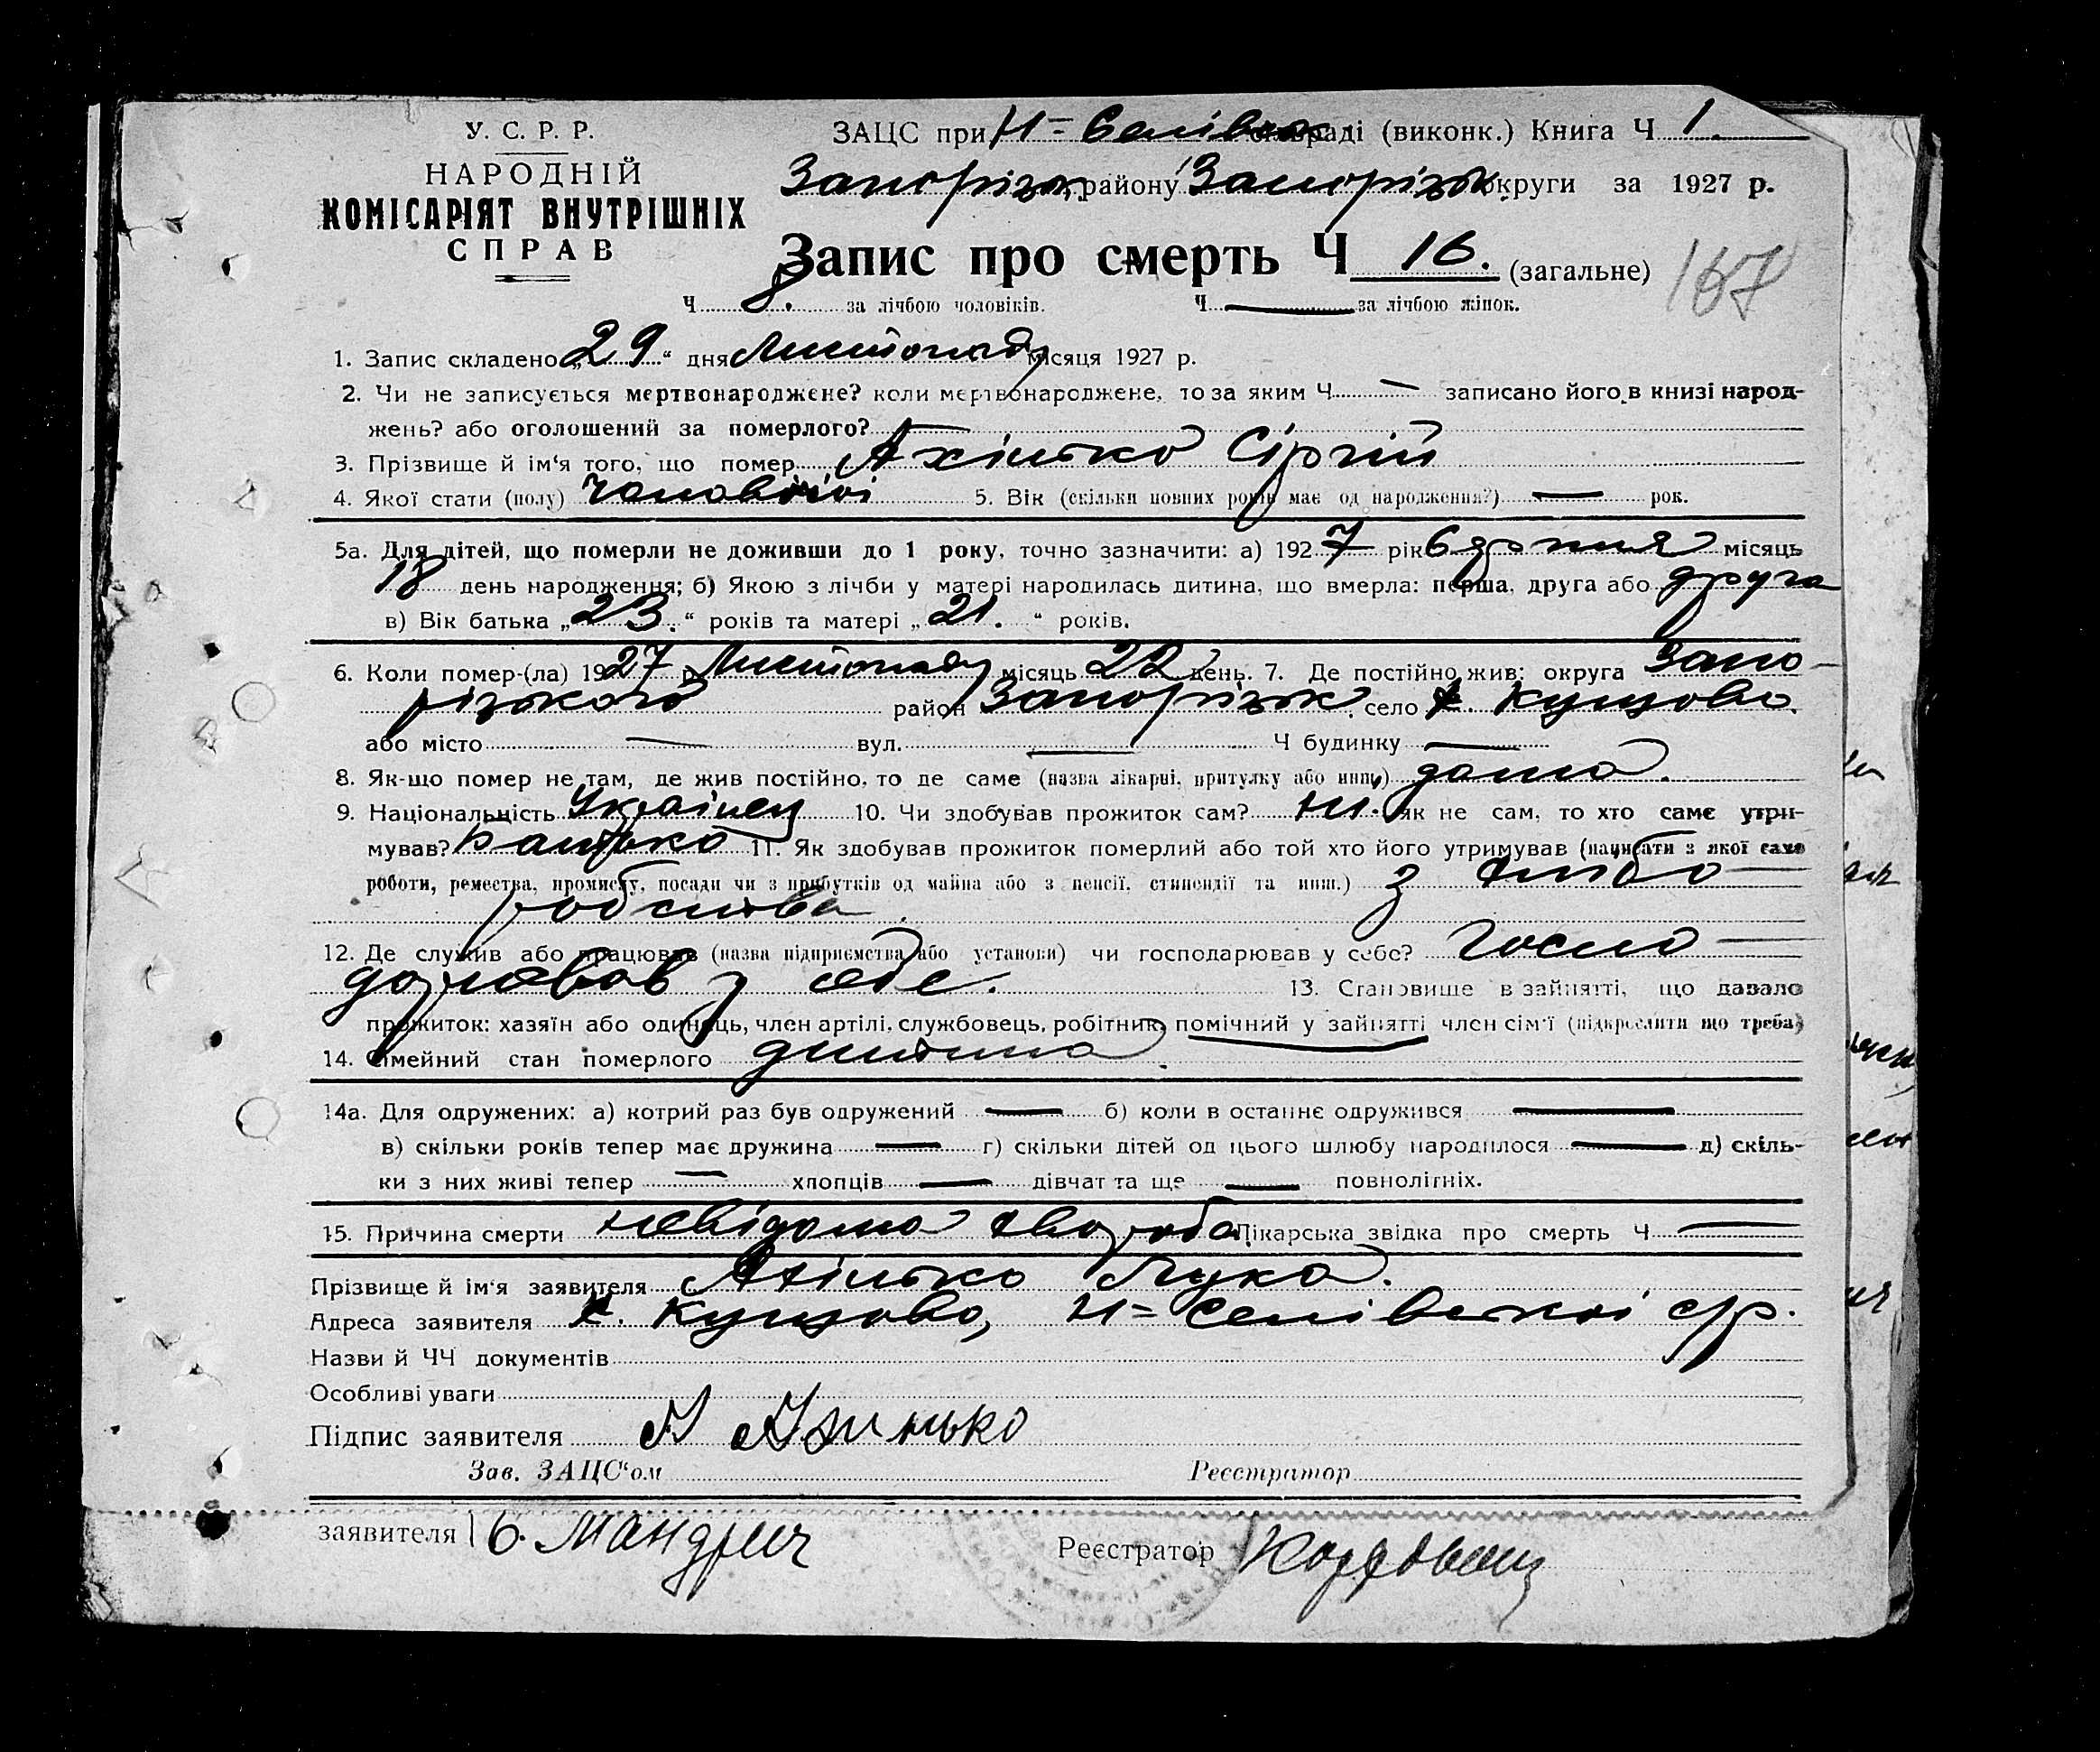 У. С. Р. Р.
НАРОДНІЙ
КОМІСАРІЯТ ВНУТРІШНІХ
СПРАВ
ЗАЦС при Н-Селівськ раді (виконк.) Книга Ч 1.
Запорізьк. району Запорізьк. округи за 1927 р.
Запис про смерть Ч 16. (загальне)
167
Ч 8. за лічбою чоловіків. Ч — за лічбою жінок.
1. Запис складено „29“ дня Листопаду місяця 1927 р.
2. Чи не записується мертвонароджене? коли мертвонароджене, то за яким Ч — записано його в книзі народ-
жень? або оголошений за померлого? —
3. Прізвище й ім‘я того, що помер Ахінько Сіргій
4. Якої стати (полу) Чоловічої 5. Вік (скільки повних років має од народження?) — рок.
5а. Для дітей, що померли не доживши до 1 року, точно зазначити: а) 1927 рік Серпня місяць
18 день народження; б) Якою з лічби у матері народилась дитина, що вмерла: перша, друга або друга
в) Вік батька „23.“ років та матері „21.“ років.
6. Коли помер-(ла) 1927 р. Листопаду місяць 22 день. 7. Де постійно жив: округа Запо-
різького район Запорізьк. село х. Кущово.
або місто — вул. — Ч будинку —
8. Як-що помер не там, де жив постійно, то де саме (назва лікарні, притулку або инш.) дома.
9. Національність Українец 10. Чи здобував прожиток сам? Ні. як не сам, то хто саме утри-
мував? Батько 11. Як здобував прожиток померлий або той хто його утримував (написати з якої саме
роботи, ремества, промислу, посади чи з прибутків од майна або з пенсії, стипендії та инш.) з хлібо-
робства.
12. Де служив або працював (назва підприємства або установи) чи господарював у себе? Госпо-
дарював у себе. 13. Становище в зайнятті, що давало
прожиток: хазяїн або одинець, член артілі, службовець, робітник, помічний у зайнятті член сім‘ї (підкреслити що треба)
14. Сімейний стан померлого дитина.
14а. Для одружених: а) котрий раз був одружений — б) коли в останнє одружився —
в) скільки років тепер має дружина — г) скільки дітей од цього шлюбу народилося — д) скіль-
ки з них живі тепер — хлопців — дівчат та ще — повнолітніх.
15. Причина смерти невідома хвороба. Лікарська звідка про смерть Ч —
Прізвище й ім‘я заявителя Ахінько Лука.
Адреса заявителя х. Кущово, Н-Селівської с/р.
Назви й ЧЧ документів
Особливі уваги
Підпис заявителя Л Ахинько
Зав. ЗАЦС“ом Реєстратор
заявителя Б. Мандрич Реєстратор